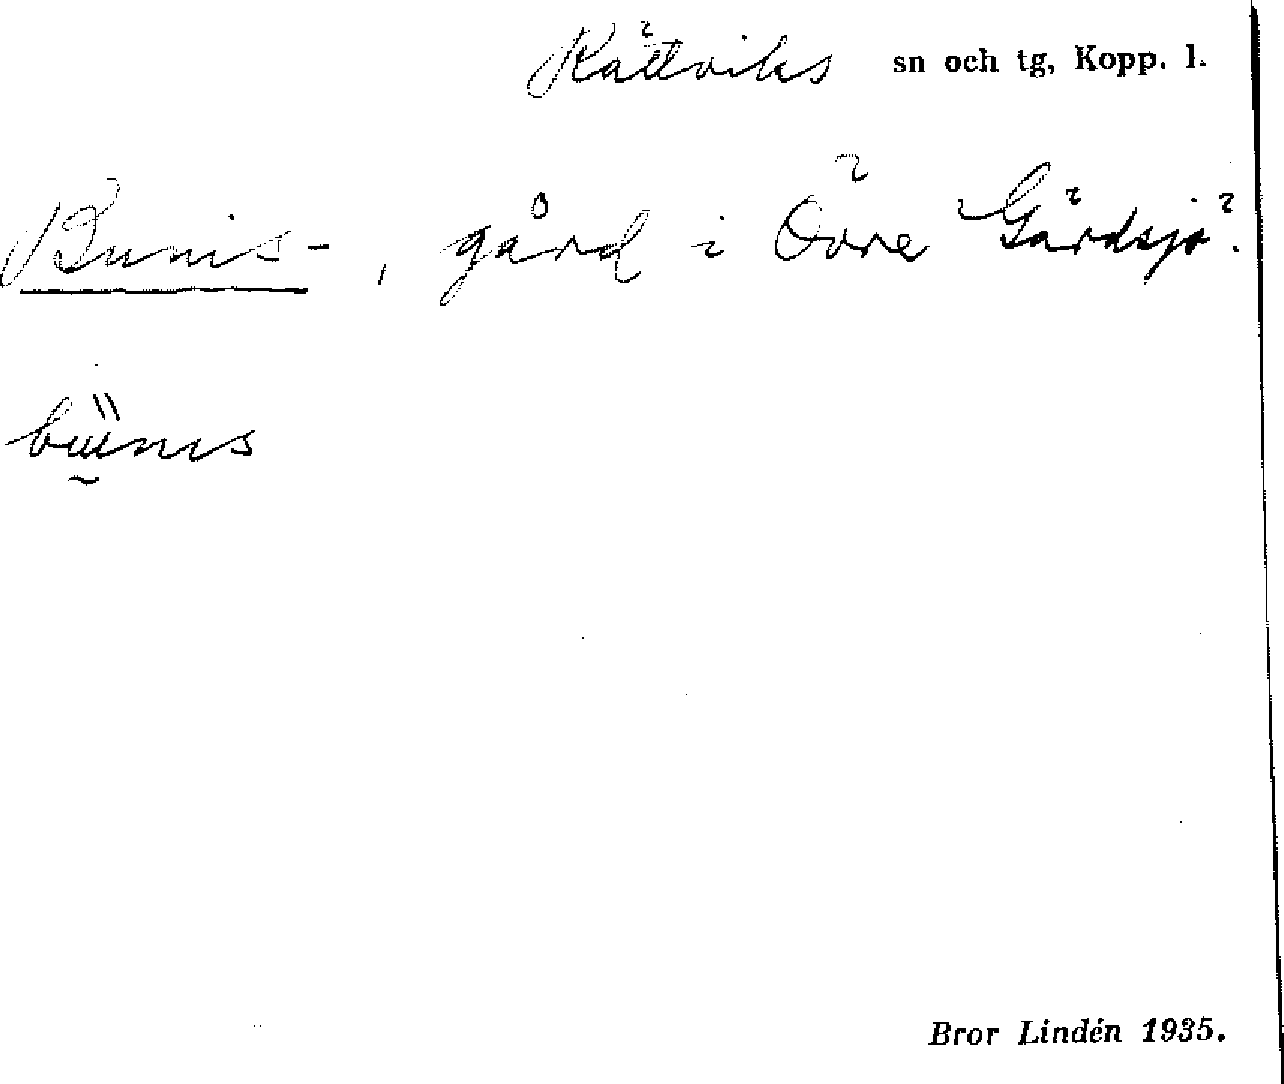 Rättviks sn och tg, Kopp. l.
Bunis-, gård i Övre Gärdsjö.
Bror Lindén 1935.